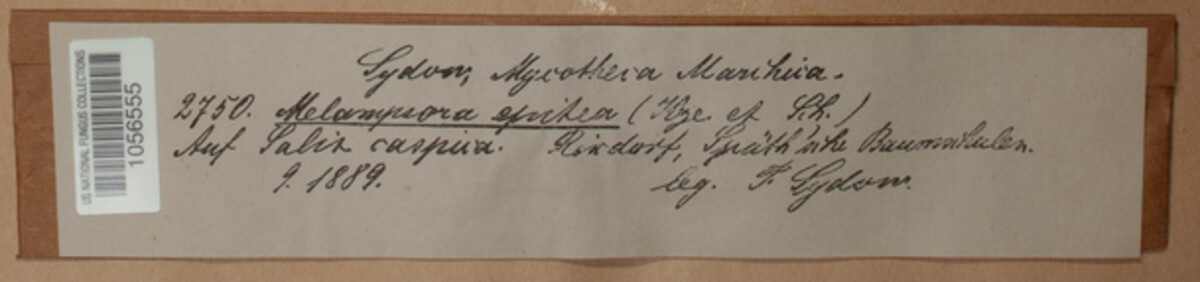 US NATIONAL FUNGUS COLLECTIONS
1056555
Sydow, Mycotheca Marchica.
2750. Melampsora epitea (Kze. et Sch.)
Auf Salix caspica. Rixdorf, Späth'sche Baumschulen.
9. 1889. leg. P. Sydow.